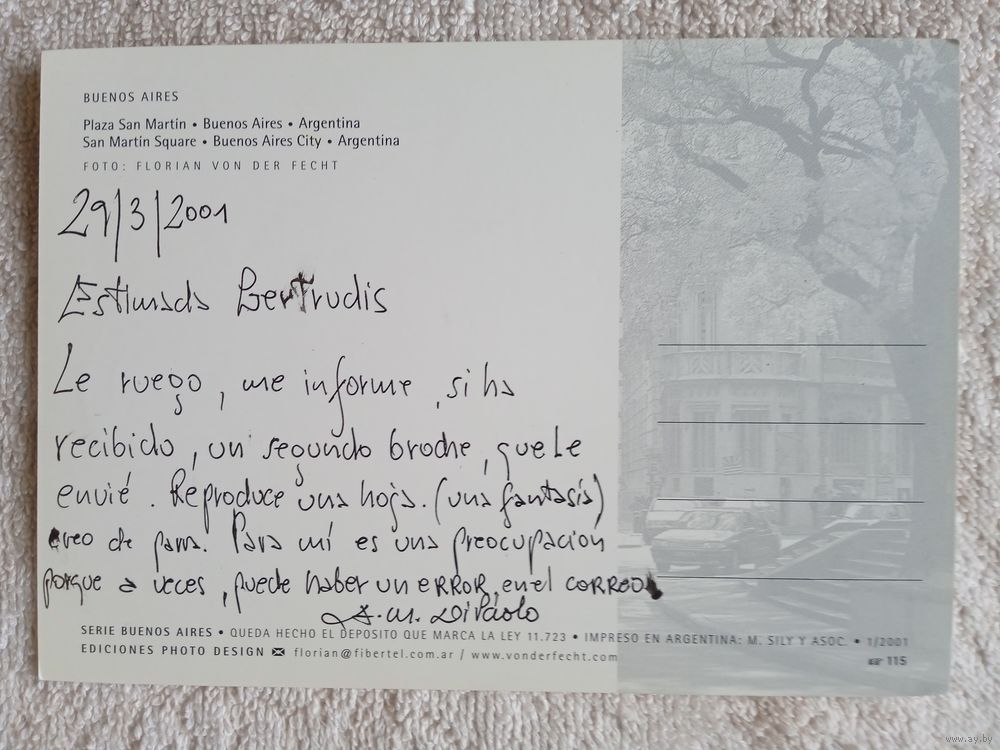 BUENOS AIRES
Plaza San Martín • Buenos Aires • Argentina
San Martín Square • Buenos Aires City • Argentina
FOTO: FLORIAN VON DER FECHT
29/3/2001
Estimada Gertrudis
Le ruego, me informe, si ha
recibido, un segundo broche, que le
envié. Reproduce una hoja. (una fantasía)
creo de parra. Para mí es una preocupacion
porque a veces, puede haber un ERROR, en el CORREO
A. M. DiPaolo
SERIE BUENOS AIRES • QUEDA HECHO EL DEPOSITO QUE MARCA LA LEY 11.723 • IMPRESO EN ARGENTINA: M. SILY Y ASOC. • 1/2001
EDICIONES PHOTO DESIGN ✉ florian@fibertel.com.ar / www.vonderfecht.com
115
www.ay.by